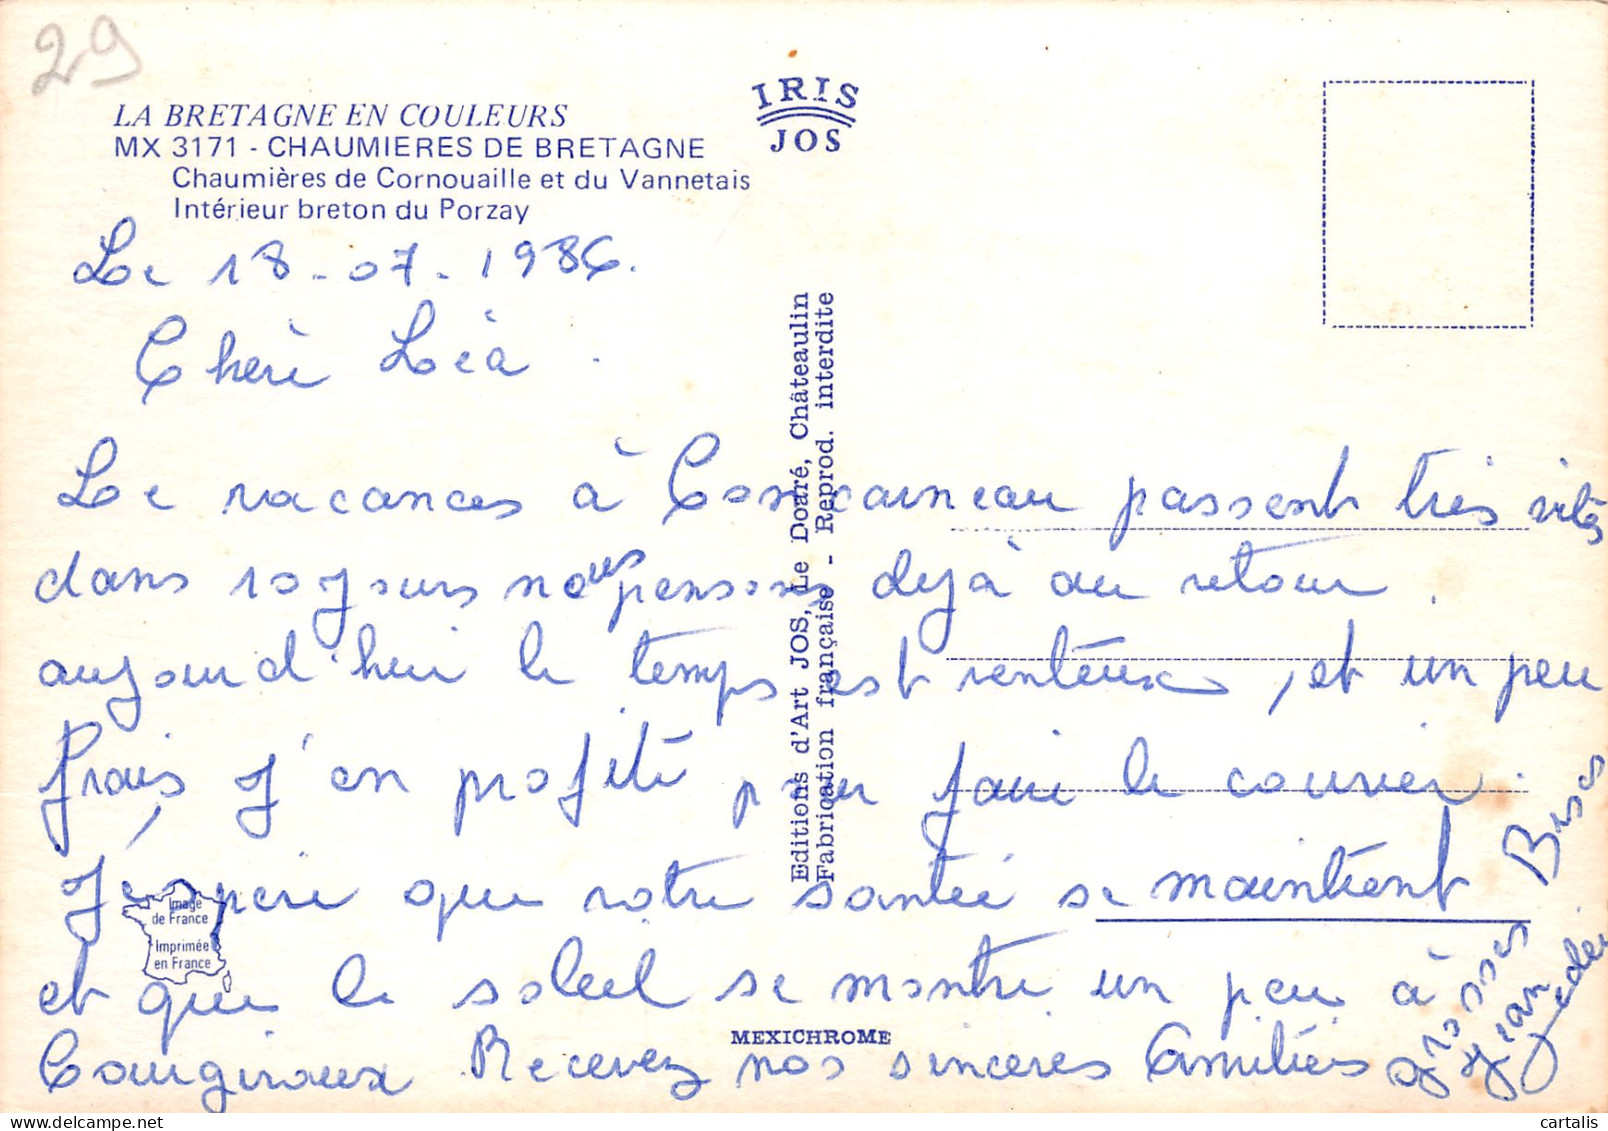 29
LA BRETAGNE EN COULEURS
MX 3171 - CHAUMIERES DE BRETAGNE
Chaumières de Cornouaille et du Vannetais
Intérieur breton du Porzay
IRIS
JOS
Le 18-07-1986.
Chère Léa.
Le vacances à Concarneau passent très vites
dans 10 jours nous pensons déjà au retour.
aujourd'hui le temps est venteux, et un peu
frais, j'en profite pour faire le courrier.
J'espère que votre santée se maintient
et que le soleil se montre un peu à
Recevez nos sincères Amitiés
grosses Bises
Editions d'Art JOS, Le Doaré, Châteaulin
Fabrication française - Reprod. interdite
Image
de France
Imprimée
en France
MEXICHROME
cartalis